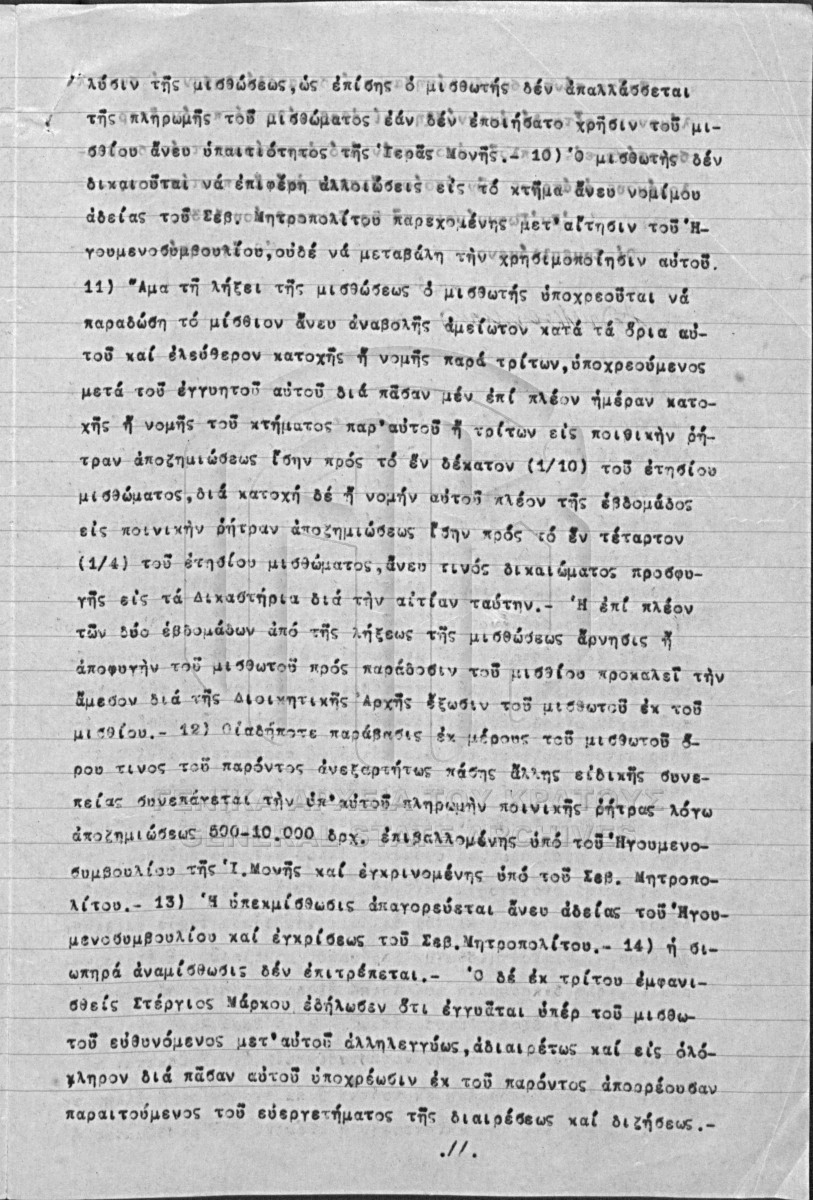 λύσιν τῆς μισθώσεως,ὡς ἐπίσης ὁ μισθωτής δέν ἀπαλλάσσεται
τῆς πληρωμῆς τοῦ μισθώματος ἐάν δέν ἐποιήσατο χρῆσιν τοῦ μι-
σθίου ἄνευ ὑπαιτιότητος τῆς Ἱερᾶς Μονῆς.- 10) Ὁ μισθωτής δέν
δικαιοῦται νά ἐπιφέρη ἀλλοιώσεις εἰς τό κτῆμα ἄνευ νομίμου
ἀδείας τοῦ Σεβ. Μητροπολίτου παρεχομένης μετ'αἴτησιν τοῦ Ἡ-
γουμενοσυμβουλίου,οὐδέ νά μεταβάλη τήν χρησιμοποίησιν αὐτοῦ.
11) Ἅμα τῆ λήξει τῆς μισθώσεως ὁ μισθωτής ὑποχρεοῦται νά
παραδώση τό μίσθιον ἄνευ ἀναβολῆς ἀμείωτον κατά τά ὅρια αὐ-
τοῦ καί ἐλεύθερον κατοχῆς ἤ νομῆς παρά τρίτων,ὑποχρεούμενος
μετά τοῦ ἐγγυητοῦ αὐτοῦ διά πᾶσαν μέν ἐπί πλέον ἡμέραν κατο-
χῆς ἤ νομῆς τοῦ κτήματος παρ'αὐτοῦ ἤ τρίτων εἰς ποιθικήν ρή-
τραν ἀποζημιώσεως ἴσην πρός τό ἕν δέκατον (1/10) τοῦ ἐτησίου
μισθώματος,διά κατοχή δέ ἤ νομήν αὐτοῦ πλέον τῆς ἑβδομάδος
εἰς ποινικήν ρήτραν ἀποζημιώσεως ἴσην πρός τό ἕν τέταρτον
(1/4) τοῦ ἐτησίου μισθώματος,ἄνευ τινός δικαιώματος προσφυ-
γῆς εἰς τά Δικαστήρια διά τήν αἰτίαν ταύτην.- Ἡ ἐπί πλέον
τῶν δύο ἑβδομάδων ἀπό τῆς λήξεως τῆς μισθώσεως ἄρνησις ἤ
ἀποφυγήν τοῦ μισθωτοῦ πρός παράδοσιν τοῦ μισθίου προκαλεῖ τήν
ἄμεσον διά τῆς Διοικητικῆς Ἀρχῆς ἔξωσιν τοῦ μισθωτοῦ ἐκ τοῦ
μισθίου.- 12) Οἱαδήποτε παράβασις ἐκ μέρους τοῦ μισθωτοῦ ὅ-
ρου τινος τοῦ παρόντος ἀνεξαρτήτως πάσης ἄλλης εἰδικῆς συνε-
πείας συνεπάγεται τήν ὑπ'αὐτοῦ πληρωμήν ποινικῆς ρήτρας λόγω
ΓΕΝΙΚΑ ΑΡΧΕΙΑ ΤΟΥ ΚΡΑΤΟΥΣ
ἀποζημιώσεως 500-10.000 δρχ. ἐπιβαλλομένης ὑπό τοῦ Ἡγουμενο-
GENERAL STATE ARCHIVES
συμβουλίου τῆς Ἱ.Μονῆς καί ἐγκρινομένης ὑπό τοῦ Σεβ. Μητροπο-
λίτου.- 13) Ἡ ὑπεκμίσθωσις ἀπαγορεύεται ἄνευ ἀδείας τοῦ Ἡγου-
μενοσυμβουλίου καί ἐγκρίσεως τοῦ Σεβ.Μητροπολίτου.- 14) ἡ σι-
ωπηρά ἀναμίσθωσις δέν ἐπιτρέπεται.- Ὁ δέ ἐκ τρίτου ἐμφανι-
σθείς Στέργιος Μάρκου ἐδήλωσεν ὅτι ἐγγυᾶται ὑπέρ τοῦ μισθω-
τοῦ εὐθυνόμενος μετ'αὐτοῦ ἀλληλεγγύως,ἀδιαιρέτως καί εἰς ὁλό-
κληρον διά πᾶσαν αὐτοῦ ὑποχρέωσιν ἐκ τοῦ παρόντος ἀπορρέουσαν
παραιτούμενος τοῦ εὐεργετήματος τῆς διαιρέσεως καί διζήσεως.-
.//.